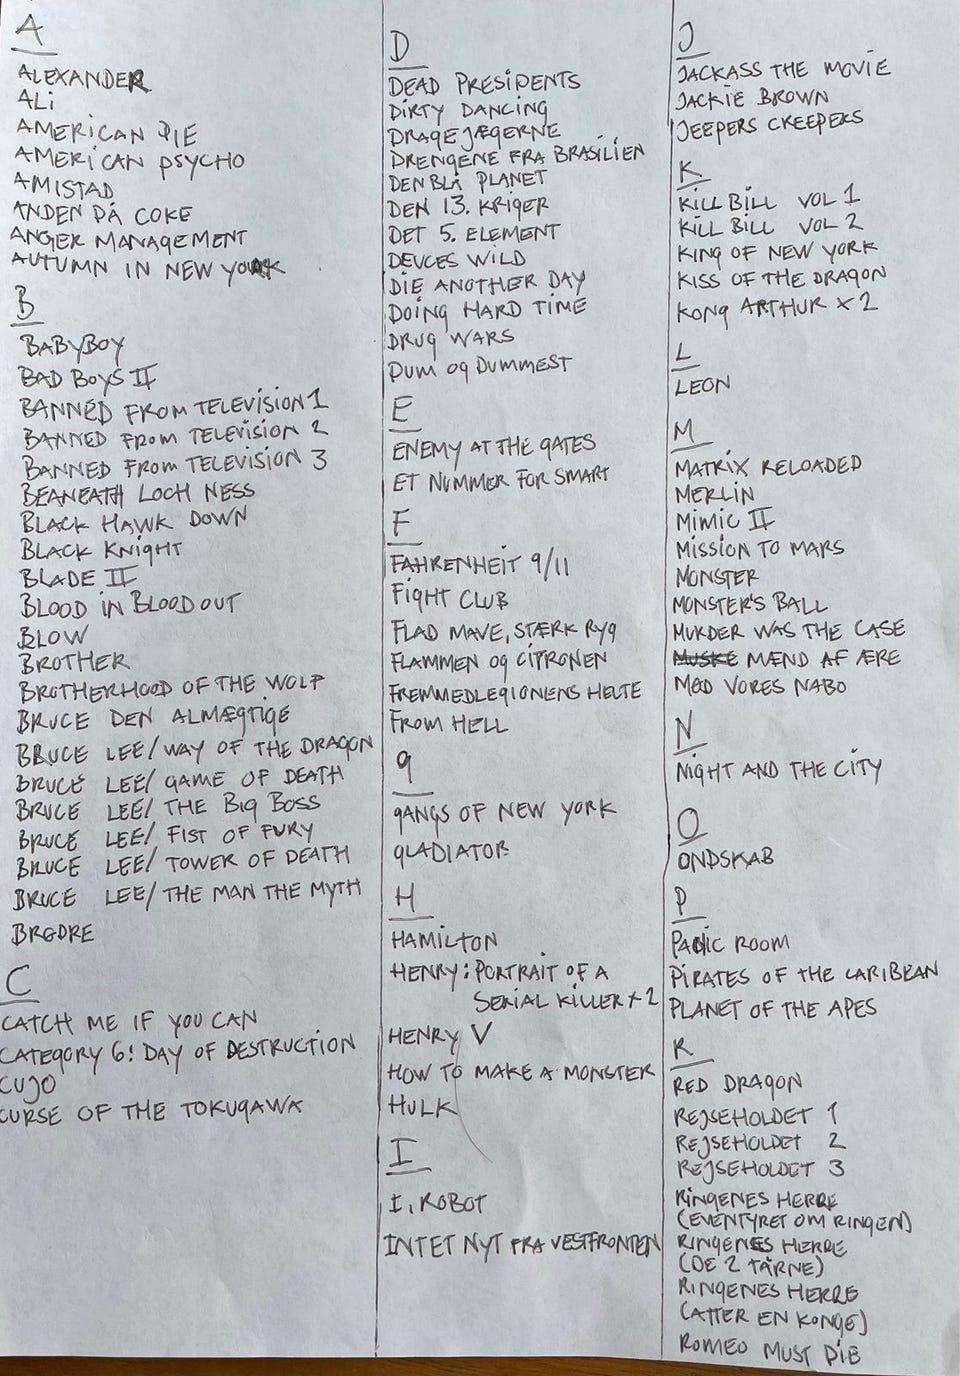 A
ALEXANDER
ALI
AMERICAN PIE
AMERICAN PSYCHO
AMISTAD
ANDEN PÅ COKE
ANGER MANAGEMENT
AUTUMN IN NEW YORK
B
BABYBOY
BAD BOYS II
BANNED FROM TELEVISION 1
BANNED FROM TELEVISION 2
BANNED FROM TELEVISION 3
BEANEATH LOCH NESS
BLACK HAWK DOWN
BLACK KNIGHT
BLADE II
BLOOD IN BLOOD OUT
BLOW
BROTHER
BROTHERHOOD OF THE WOLF
BRUCE DEN ALMÆGTIGE
BRUCE LEE/ WAY OF THE DRAGON
BRUCE LEE/ GAME OF DEATH
BRUCE LEE/ THE BIG BOSS
BRUCE LEE/ FIST OF FURY
BRUCE LEE/ TOWER OF DEATH
BRUCE LEE/ THE MAN THE MYTH
BRØDRE
C
CATCH ME IF YOU CAN
CATEGORY 6: DAY OF DESTRUCTION
CUJO
CURSE OF THE TOKUGAWA
D
DEAD PRESIDENTS
DIRTY DANCING
DRAGEJÆGERNE
DRENGENE FRA BRASILIEN
DEN BLÅ PLANET
DEN 13. KRIGER
DET 5. ELEMENT
DEUCES WILD
DIE ANOTHER DAY
DOING HARD TIME
DRUG WARS
DUM OG DUMMEST
E
ENEMY AT THE GATES
ET NUMMER FOR SMART
F
FAHRENHEIT 9/11
FIGHT CLUB
FLAD MAVE, STÆRK RYG
FLAMMEN OG CITRONEN
FREMMEDLEGIONENS HELTE
FROM HELL
G
GANGS OF NEW YORK
GLADIATOR
H
HAMILTON
HENRY: PORTRAIT OF A
SERIAL KILLER x 2
HENRY V
HOW TO MAKE A MONSTER
HULK
I
I, ROBOT
INTET NYT FRA VESTFRONTEN
J
JACKASS THE MOVIE
JACKIE BROWN
JEEPERS CREEPERS
K
KILL BILL VOL 1
KILL BILL VOL 2
KING OF NEW YORK
KISS OF THE DRAGON
KONG ARTHUR x 2
L
LEON
M
MATRIX RELOADED
MERLIN
MIMIC II
MISSION TO MARS
MONSTER
MONSTER'S BALL
MURDER WAS THE CASE
MUSKE MÆND AF ÆRE
MØD VORES NABO
N
NIGHT AND THE CITY
O
ONDSKAB
P
PANIC ROOM
PIRATES OF THE CARIBEAN
PLANET OF THE APES
R
RED DRAGON
REJSEHOLDET 1
REJSEHOLDET 2
REJSEHOLDET 3
RINGENES HERRE
(EVENTYRET OM RINGEN)
RINGENES HERRE
(DE 2 TÅRNE)
RINGENES HERRE
(ATTER EN KONGE)
ROMEO MUST DIE